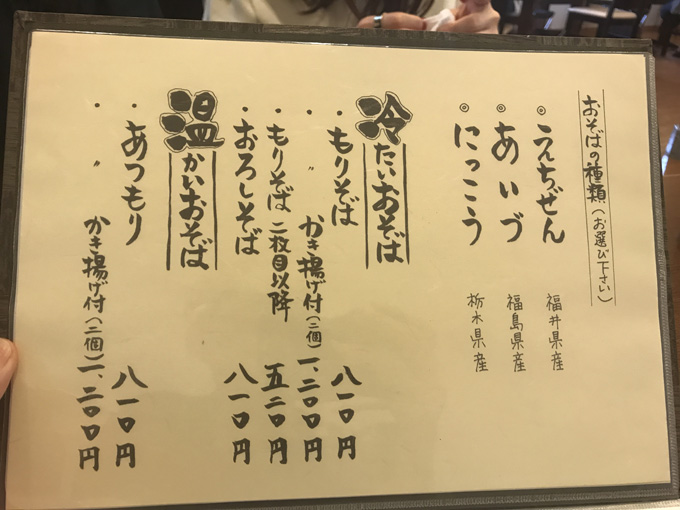 おそばの種類（お選び下さい）
◎うえちぜん 福井県産
◎あいづ 福島県産
◎にっこう 栃木県産
冷たいおそば
・もりそば 八一〇円
・〃 かき揚げ付（二個）一、二〇〇円
・もりそば二枚目以降 五二〇円
・おろしそば 八一〇円
温かいおそば
・あつもり 八一〇円
・〃 かき揚げ付（二個）一、二〇〇円